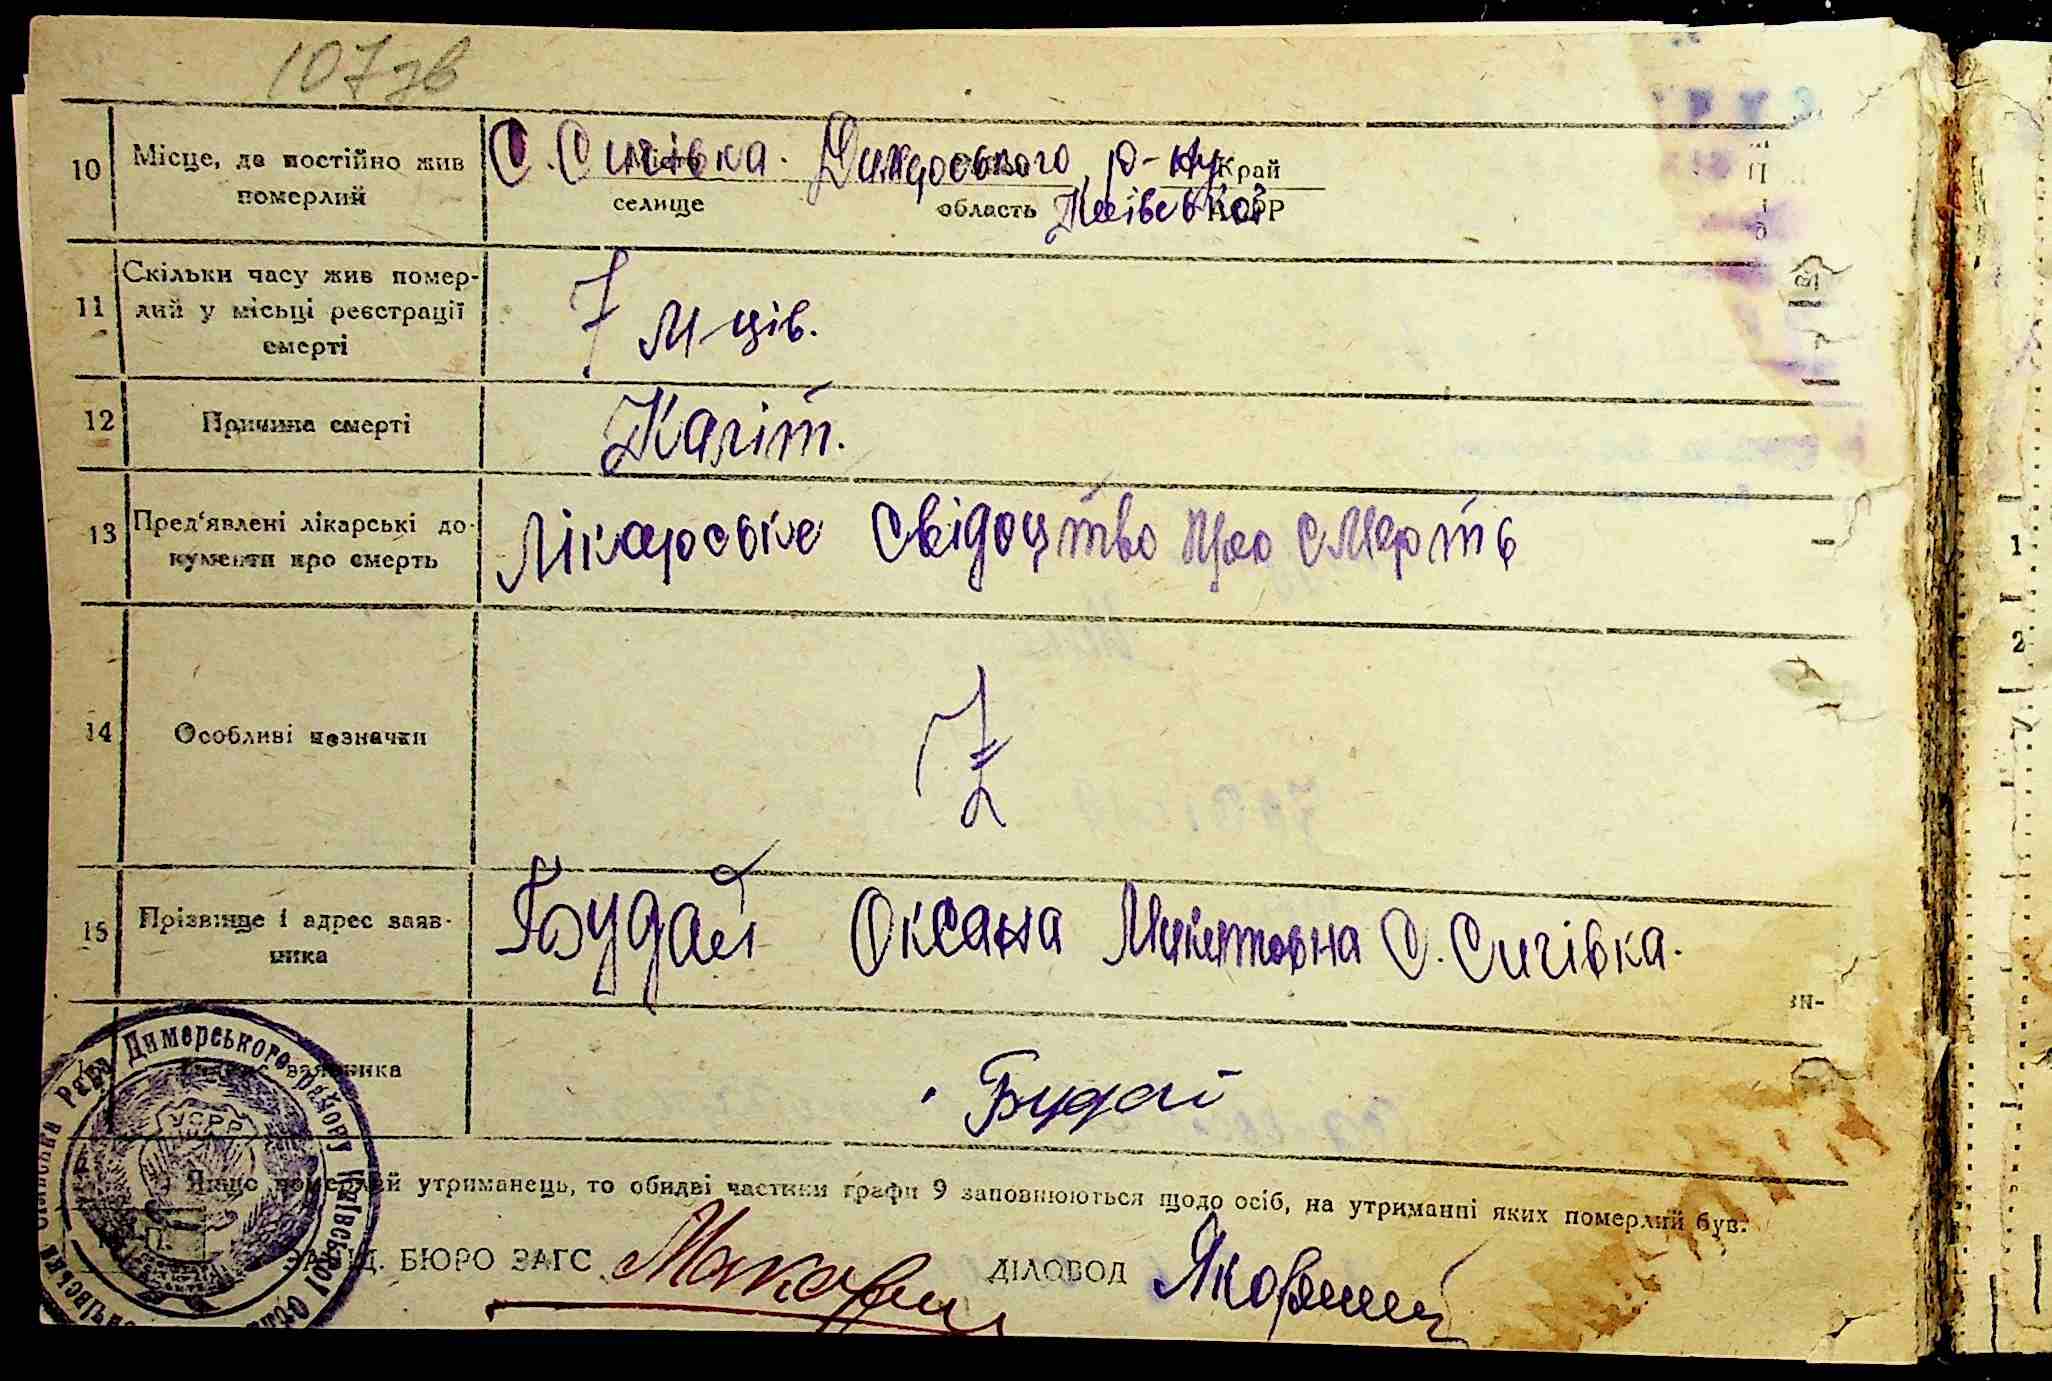 107зв
10 Місце, де постійно жив померлий
С. Ситівка. Димерського р-ну
Місто Край
селище область Київської АСРР
11 Скільки часу жив помер-
лий у місьці реєстрації
смерті
7 м-ців.
12 Причина смерті
Каліт.
13 Пред'явлені лікарські до-
кументи про смерть
Лікарське свідоцтво про смерть
14 Особливі назначки
Z
15 Прізвище і адрес заяв-
ника
Будай Оксана Микитовна С. Ситівка.
заявника
Будай
Якщо померлий утриманець, то обидві частини графи 9 заповнюються щодо осіб, на утриманні яких померлий був.
ЗАВІД. БЮРО ЗАГС
ДІЛОВОД
Рада Димерського району Київської
УСРР
зи-
1
2